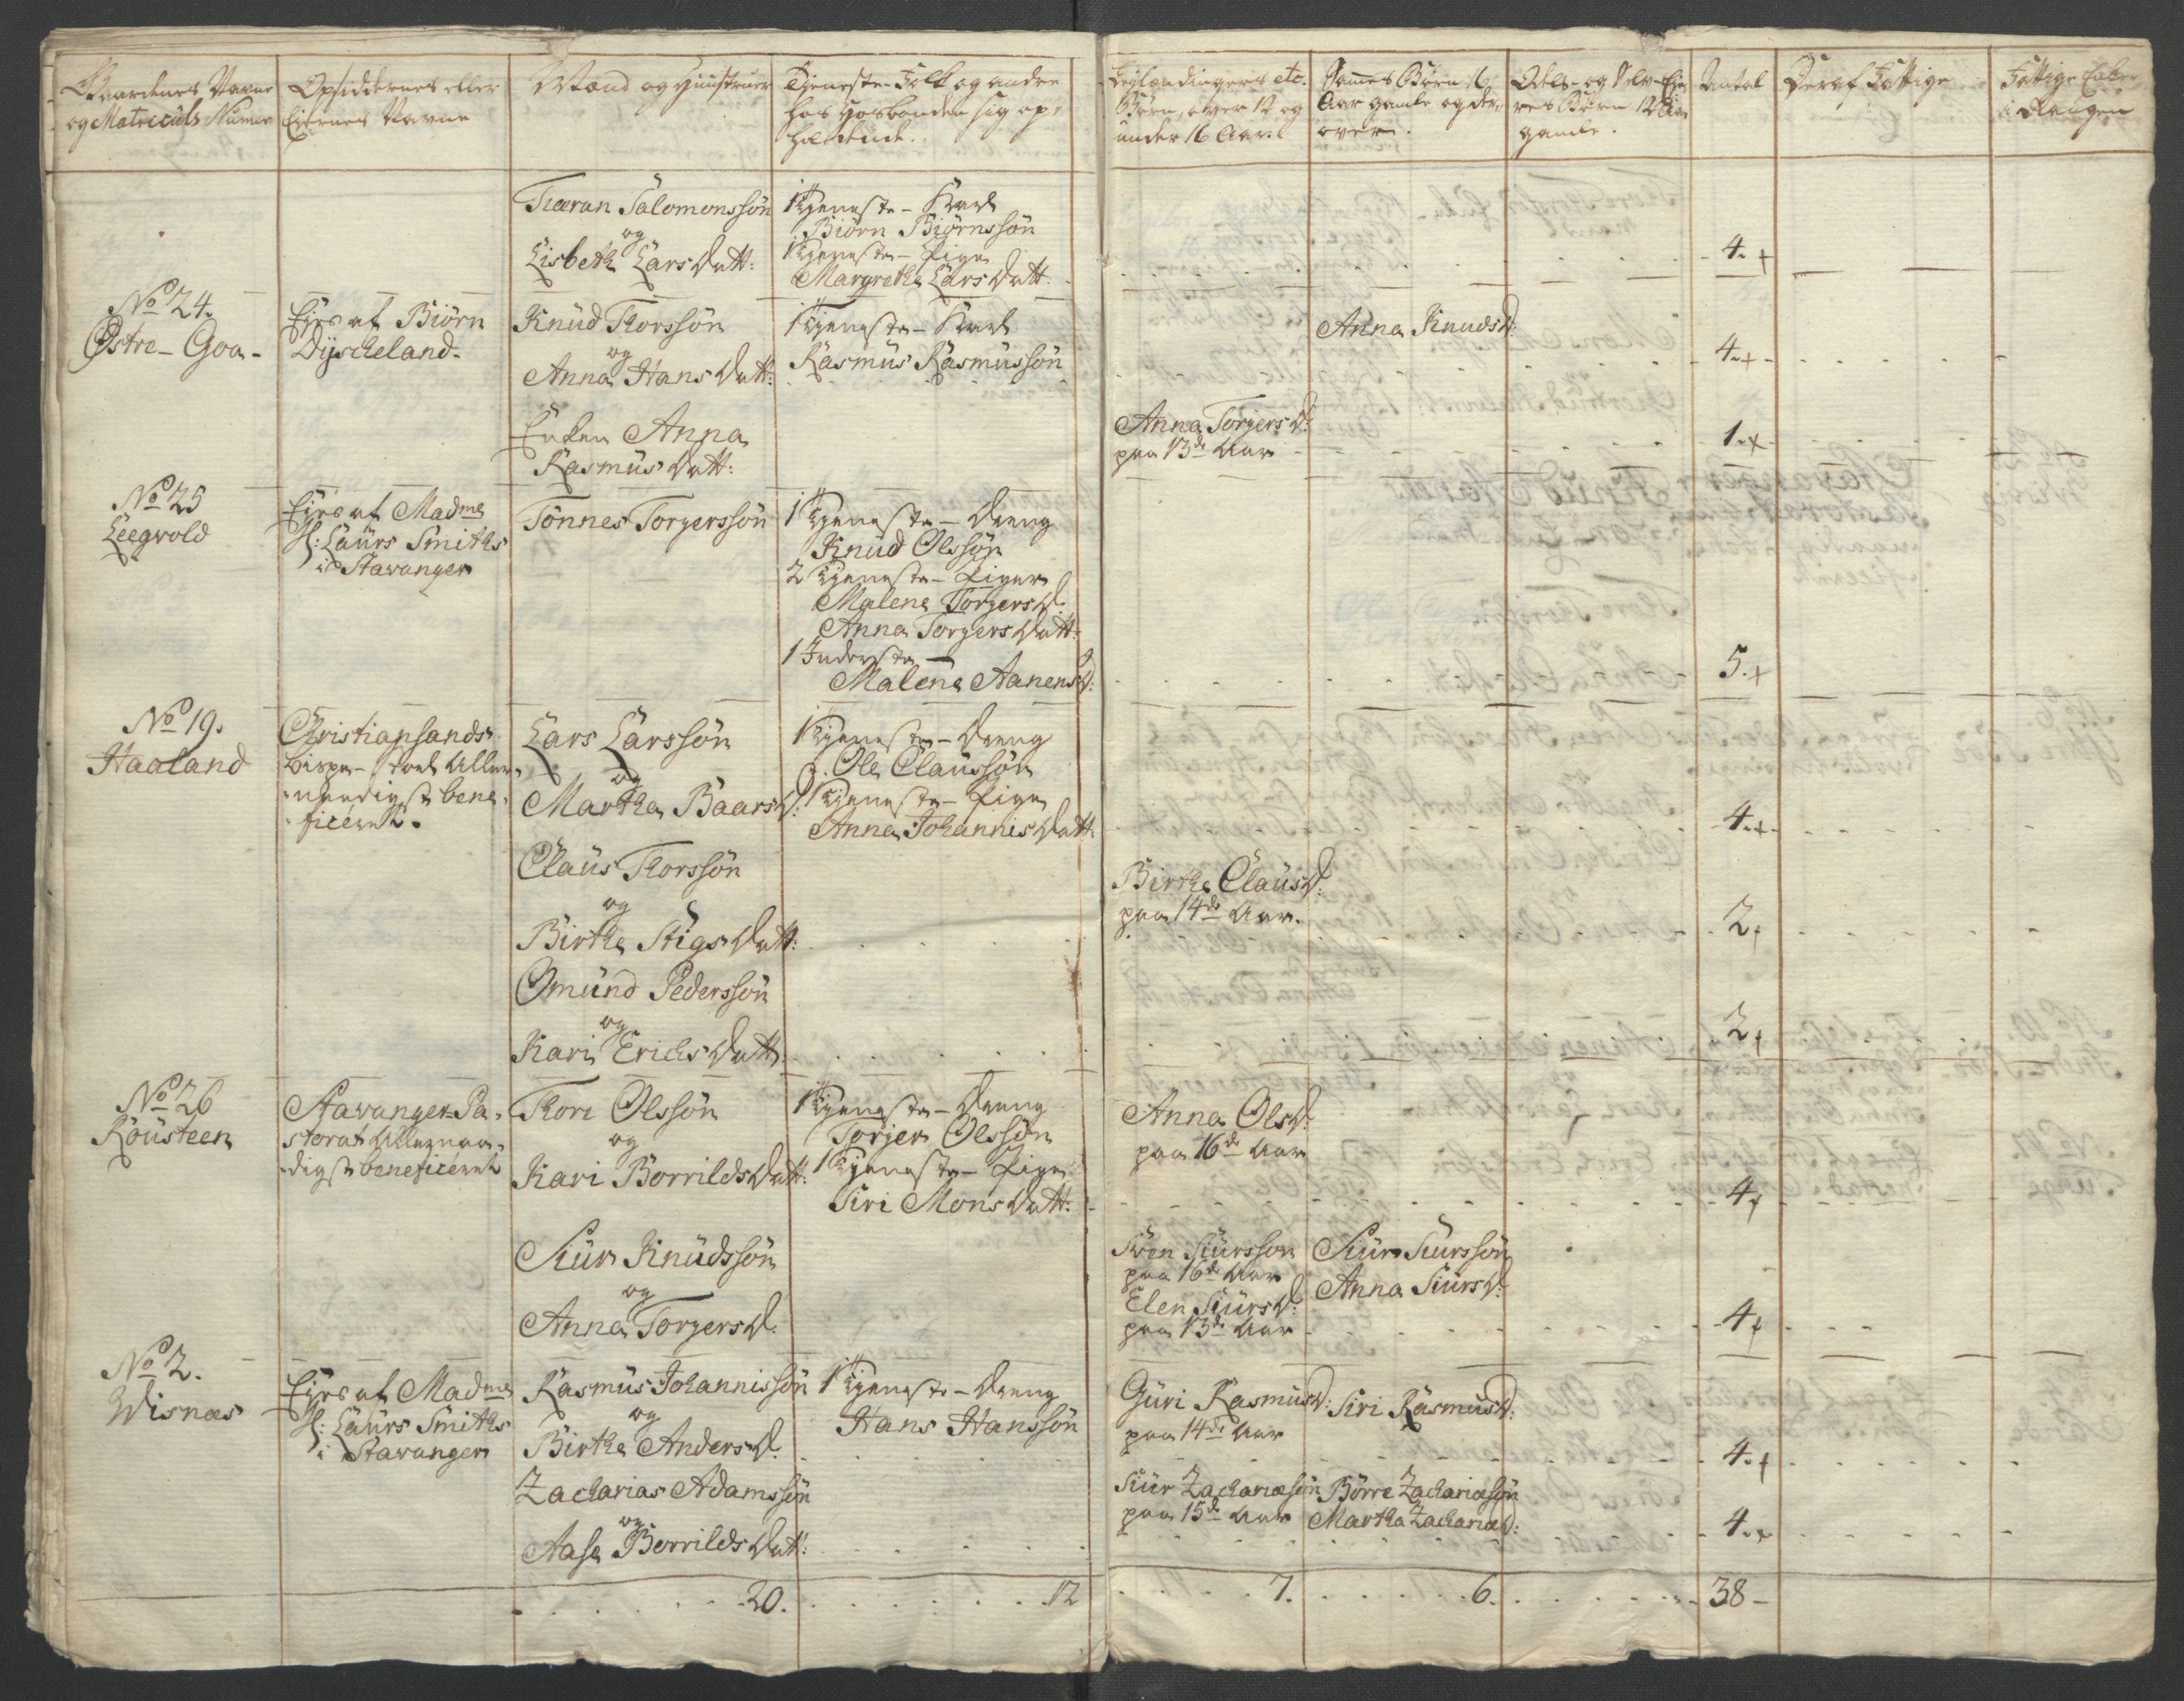 Gaardenes Navne
og Matriculs Numre
Opsiddernes eller
Eiernes Navne
Mænd og Hustruer
Tjeneste-Folk og andre
hos Hosbonden sig op-
holdende.
Børn, over 12 og
under 16 Aar.
Sames Børn 16
Aar gamle og der-
over.
Odels- og Selv-Eie-
res Børn 12 Aar
gamle.
Antal
Deraf Fattige
Fattige Enker
Tiæran Salomonssøn
og
Lisbeth Larsdatt:
1 Tjeneste-Karl
Biörn Biörnssøn
1 Tjeneste-Pige
Margrethe Larsdatt:
4.+
No 24.
Østre-Goa-
Eies af Biörn
Dyscheland-
Knud Thorssøn
og
Anna Hansdatt:
1 Tjeneste-Karl
Rasmus Rasmussøn
Anna Knudsd:
4.+
Enken Anna
Rasmusdatt:
Anna Torgersd:
paa 13de Aar
1.+
No 25
Leegvold
Eies af Madme
Sl: Laurs Smiths
i Stavanger
Tönnes Torgerssøn
1 Tjeneste-Dreng
Knud Olssøn
2 Tjeneste-Piger
Malene Torgersd.
Anna Torgersdatt:
1 Inderste
Malene Aanensd:
5.+
No 19.
Haaland
Christiansands
Bispe-Stoel Aller-
naadigst bene-
ficeret.
Lars Larssøn
og
Martha Baarsd:
1 Tjeneste-Dreng
Ole Claussøn
1 Tjeneste-Pige
Anna Johannisdatt:
4.+
Claus Thorssøn
og
Birthe Stigsdatt:
Birthe Clausd:
paa 14de Aar.
2+
Omund Pederssøn
og
Kari Erichsdatt:
2+
No 26
Rousteen
Stavanger Pa-
storat Allernaa-
digst beneficeret
Thore Olssøn
og
Kari Borrildsdatt:
1 Tjeneste-Dreng
Torjer Olssøn
1 Tjeneste-Pige
Siri Monsdatt:
Anna Olsd:
paa 16de Aar
4+
Siur Knudssøn
og
Anna Torgersd.
Sven Siurssøn
paa 16de Aar
Elen Siursd:
paa 13de Aar
Siur Siurssøn
Anna Siursd:
4+
No 2.
Wisnæs
Eies af Madme
Sl: Laurs Smiths
i Stavanger
Rasmus Johannissøn
og
Birthe Andersd.
1 Tjeneste-Dreng
Hans Hanssøn
Guri Rasmusd:
paa 14de Aar
Siri Rasmusd:
4.+
Zacharias Adamssøn
og
Aase Borrildsdat:
Siur Zachariæsøn
paa 15de Aar
Börre Zachariæsøn
Martha Zachariæd:
4.+
20.
12
7.
6.
38-